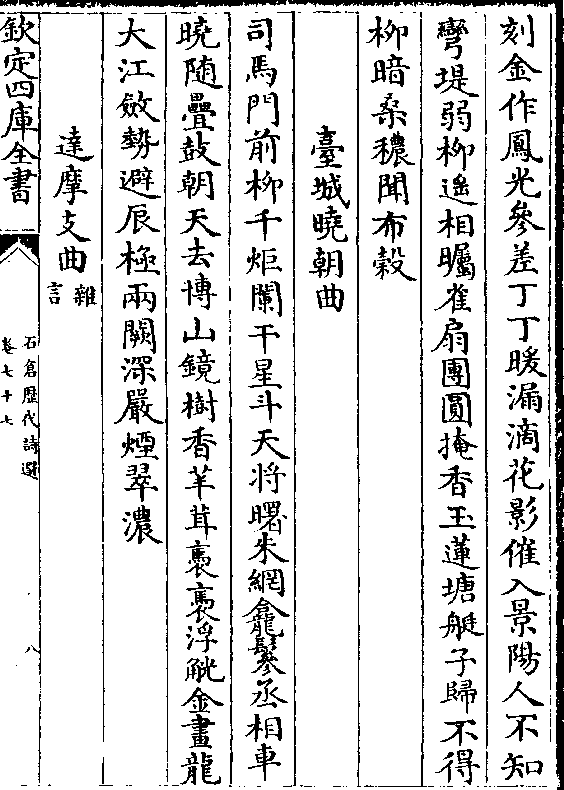 刻金作鳳光參差丁丁暖漏滴花影催入景陽人不知
彎堤弱柳遙相矚雀扇團圓掩香玉蓮塘艇子歸不得
柳暗桑穠聞布穀
臺城曉朝曲
司馬門前柳千炬闌干星斗天將曙朱網龕鬖丞相車
曉随疊鼓朝天去博山鏡樹香丰茸裊裊浮航金畫龍
大江斂勢避辰極兩闕深嚴煙翠濃
達摩支曲雜言
欽定四庫全書
石倉歷代詩選
卷七十七
八